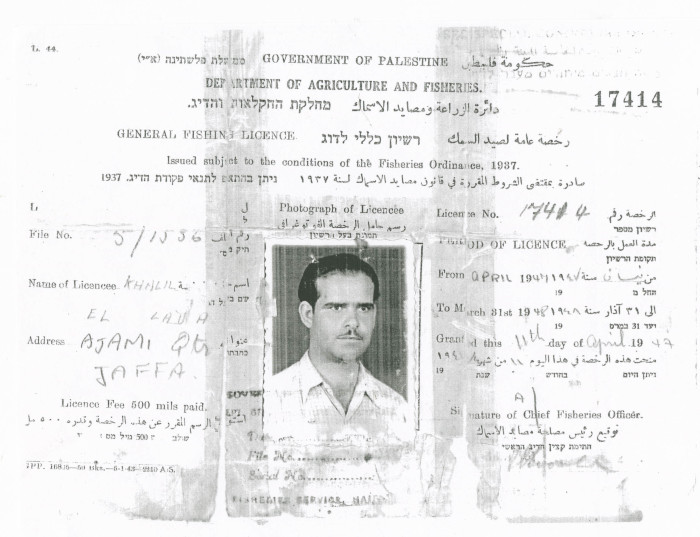 L. 44.
GOVERNMENT OF PALESTINE ממשלת פלשתינה (א״י) حكومة فلسطين
DEPARTMENT OF AGRICULTURE AND FISHERIES.
17414
דائرة الزراعة ومصايد الاسماك מחלקת החקלאות והדיג.
GENERAL FISHING LICENCE. רשיון כללי לדוג رخصة عامة لصيد السمك
Issued subject to the conditions of the Fisheries Ordinance, 1937.
صادرة بمقتضى الشروط المقررة في قانون مصايد الاسماك لسنة ١٩٣٧ ניתן בהתאם לתנאי פקודת הדיג. 1937
Photograph of Licencee
رسم حامل الرخصة الفوتوغرافي
תמונת בעל הרשיון
File No. 5/1536
תיק מס׳
Name of Licencee KHALIL
EL
Address AJAMI Qtr
JAFFA.
Licence Fee 500 mils paid.
الرسم المقرر عن هذه الرخصة وقدره ٥٠٠ مل
Licence No. 17414 الرخصة رقم
רשיון מספר
PERIOD OF LICENCE. مدة العمل بالرخصة
תקופת הרשיון
From APRIL 1947 ١٩٤٧ سنة نيسان من
תחל מ 19
To March 31st 1948 ١٩٤٨ سنة آذار ٣١ الى
ועד 31 במרס 19
Granted this 11th day of April 1947
منحت هذه الرخصة في هذا اليوم ١١ من شهر
ניתן היום בחודש שנת 19
Signature of Chief Fisheries Officer.
توقيع رئيس مصلحة مصايد الاسماك
חתימת קצין הדיג הראשי
File No.
Serial No.
FISHERIES SERVICE,